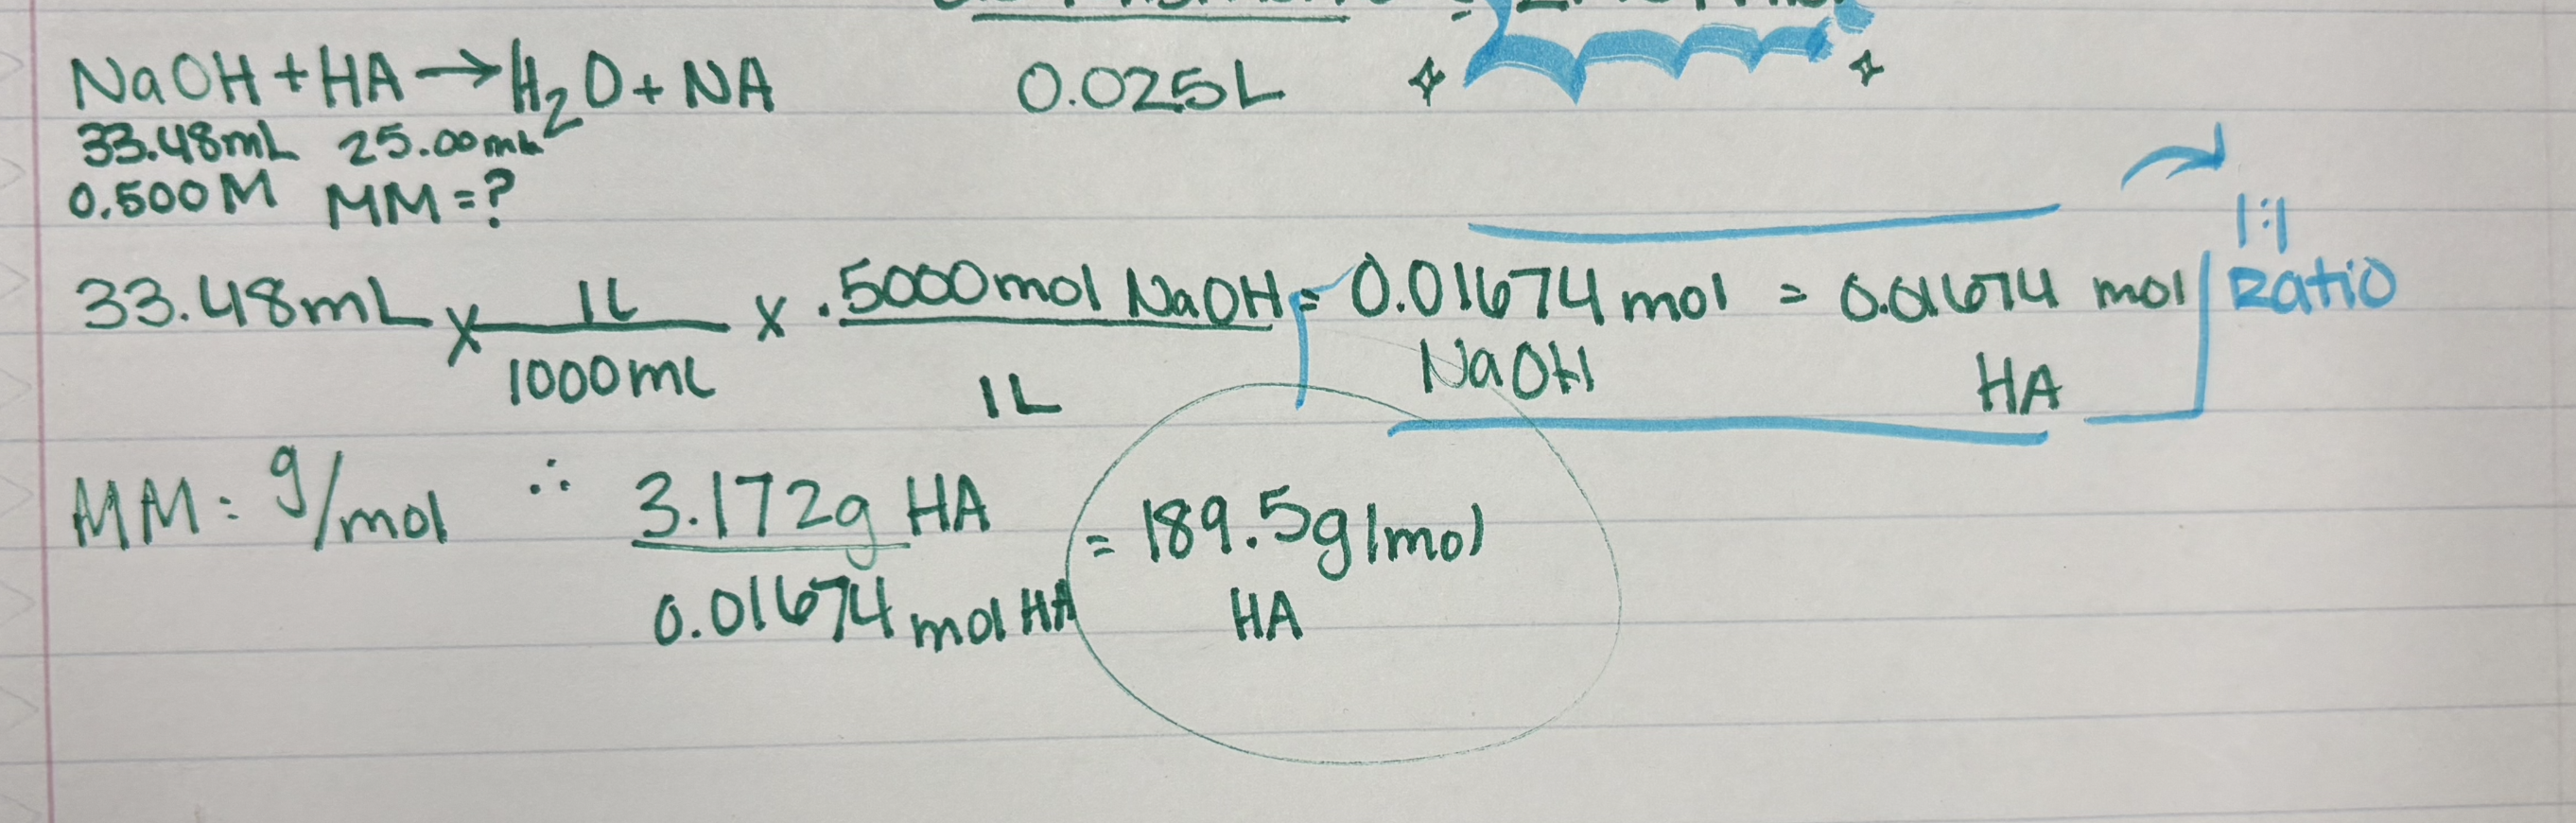 NaOH + HA → H2O + NA 0.025L
33.48mL 25.00mL
0.500M MM=?
1:1
33.48mL x 1L/1000mL x .5000mol NaOH/1L = 0.01674 mol NaOH = 0.01674 mol HA Ratio
MM: g/mol ∴ 3.172g HA/0.01674 mol HA = 189.5g/mol HA